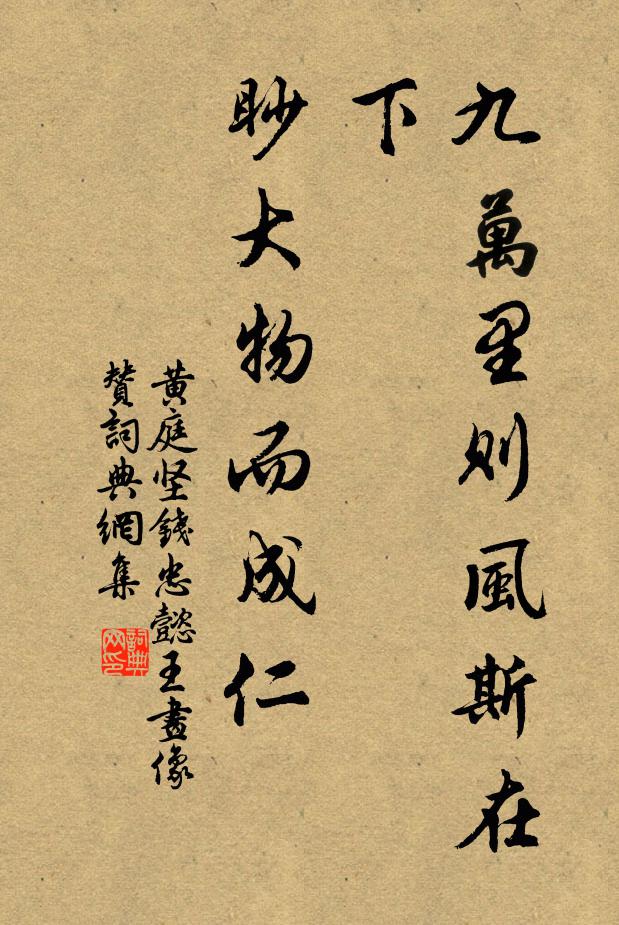 九萬里則風斯在
下
眇大物而成仁
黃庭坚錢忠懿王畫像
贊詞典網集
詞典
网印